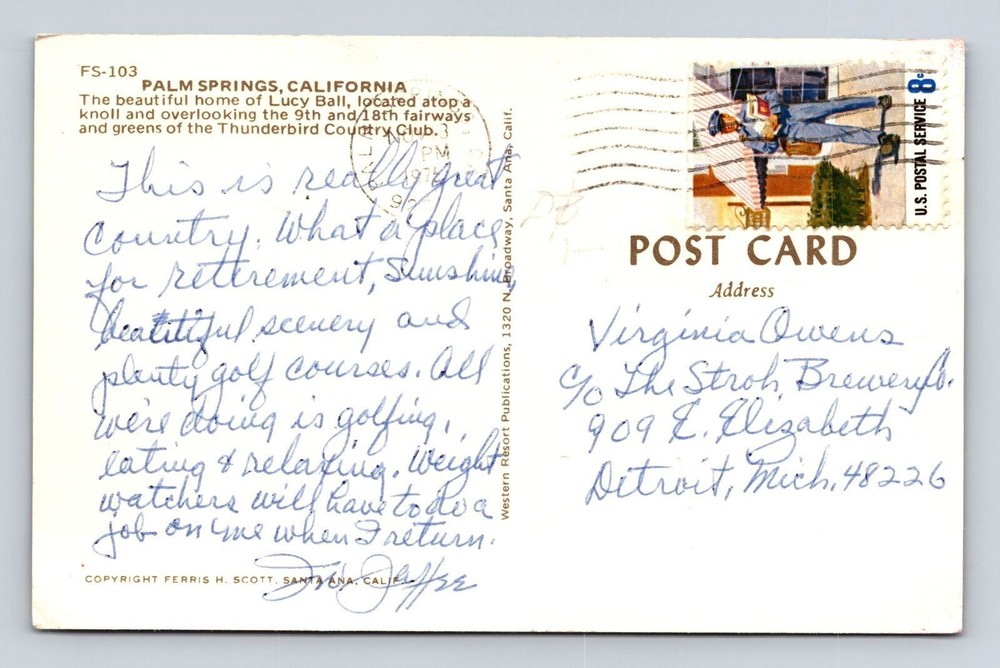 FS-103
PALM SPRINGS, CALIFORNIA
The beautiful home of Lucy Ball, located atop a
knoll and overlooking the 9th and 18th fairways
and greens of the Thunderbird Country Club.
This is really great
country. What a place
for retirement, Sunshine,
beautiful scenery and
plenty golf courses. All
we're doing is golfing,
eating & relaxing. Weight
watchers will have to do a
job on me when I return.
Jaffee
COPYRIGHT FERRIS H. SCOTT, SANTA ANA, CALIF.
Western Resort Publications, 1320 N. Broadway, Santa Ana, Calif.
PM
U.S. POSTAL SERVICE 8c
POST CARD
Address
Virginia Owens
c/o The Stroh Brewery Co.
909 E. Elizabeth
Detroit, Mich. 48226